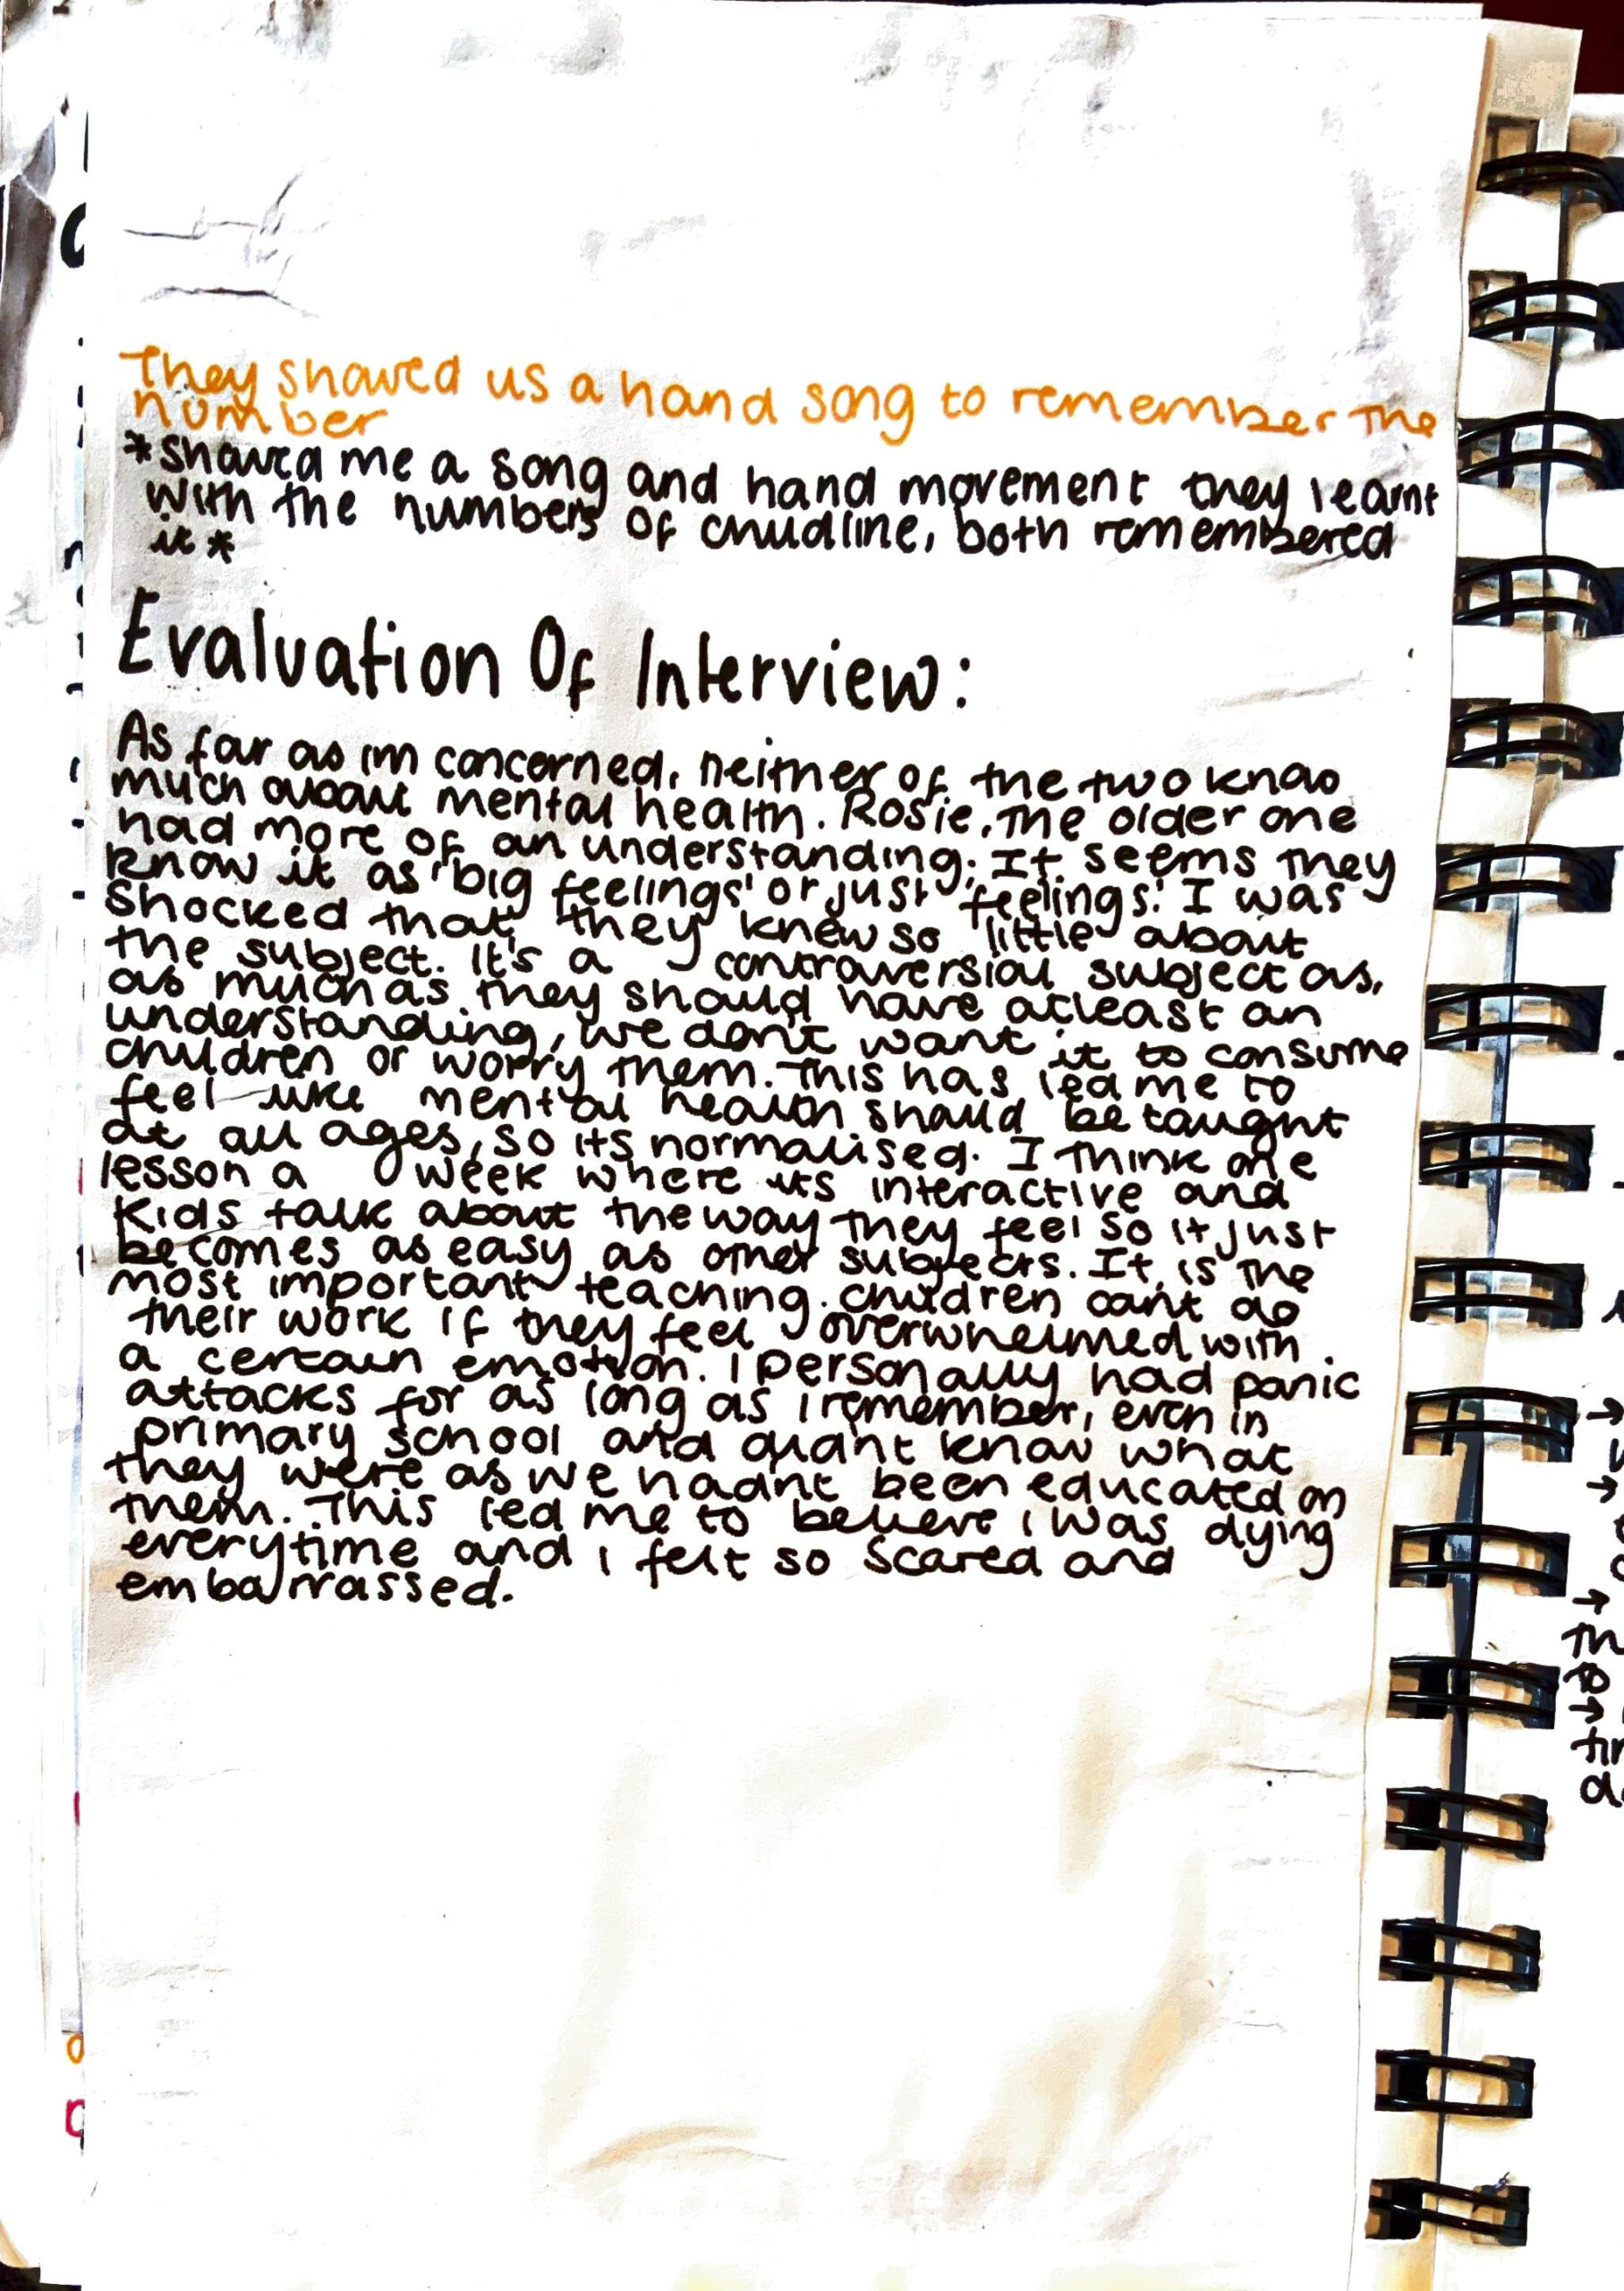 They showed us a hand song to remember the
number
*showed me a song and hand movement they learnt
with the numbers of childline, both remembered
it*
Evaluation Of Interview:
As far as im concerned, neither of the two know
much about mental health. Rosie, the older one
had more of an understanding. It seems they
know it as 'big feelings' or just 'feelings'. I was
shocked that they knew so little about
the subject. It's a contraversial subject as,
as much as they should have atleast an
understanding, we don't want it to consume
children or worry them. This has led me to
feel like mental health should be taught
at all ages, so its normalised. I think one
lesson a week where its interactive and
kids talk about the way they feel so it just
becomes as easy as other subjects. It is the
most important teaching. children cant do
their work if they feel overwhelmed with
a certain emotion. I personally had panic
attacks for as long as I remember, even in
primary school and didnt know what
they were as we hadnt been educated on
them. This led me to believe i was dying
everytime and i felt so scared and
embarrassed.